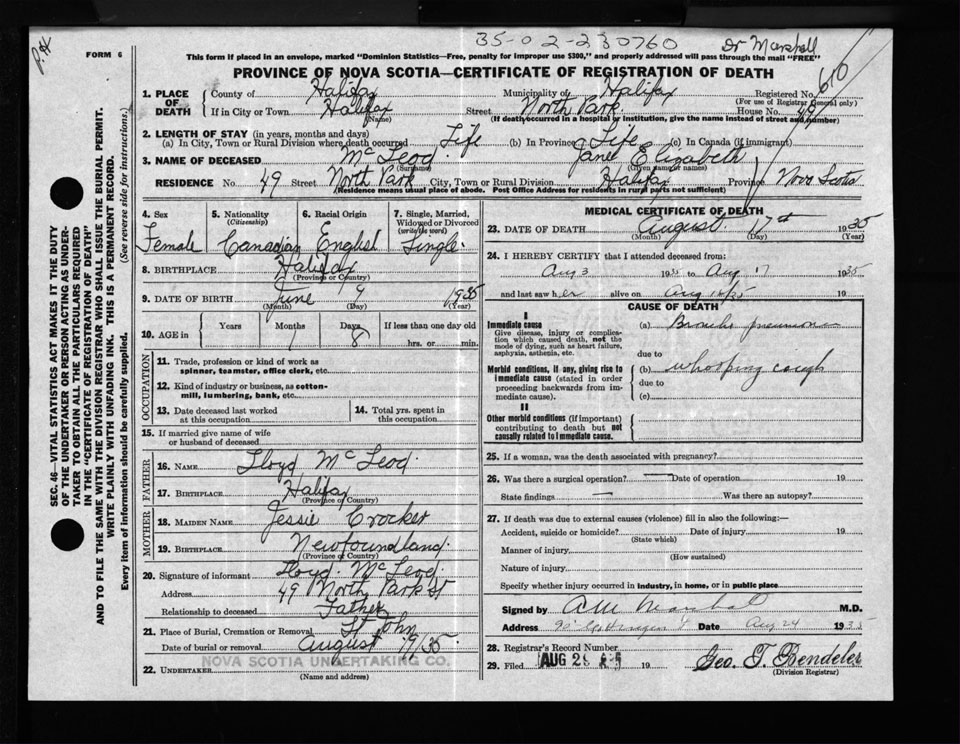 P.H.
35-02-230760
Dr Marshall
FORM 6
This form if placed in an envelope, marked "Dominion Statistics—Free, penalty for improper use $300," and properly addressed will pass through the mail "FREE"
PROVINCE OF NOVA SCOTIA—CERTIFICATE OF REGISTRATION OF DEATH
610
1. PLACE OF DEATH County of Halifax Municipality of Halifax Registered No.
(For use of Registrar General only)
If in City or Town Halifax Street North Park House No. 49
(Name) (If death occurred in a hospital or institution, give the name instead of street and number)
2. LENGTH OF STAY (in years, months and days)
(a) In City, Town or Rural Division where death occurred Life (b) In Province Life (c) In Canada (if immigrant)
3. NAME OF DECEASED McLeod Jane Elizabeth
(Surname) (Given name or names)
RESIDENCE No. 49 Street North Park City, Town or Rural Division Halifax Province Nova Scotia
(Residence means usual place of abode. Post Office Address for residents in rural parts not sufficient)
4. Sex 5. Nationality (Citizenship) 6. Racial Origin 7. Single, Married, Widowed or Divorced (write the word)
Female Canadian English Single
8. BIRTHPLACE Halifax
(Province or Country)
9. DATE OF BIRTH June 9 1935
(Month) (Day) (Year)
10. AGE in Years Months Days If less than one day old
8 hrs. or min.
OCCUPATION
11. Trade, profession or kind of work as spinner, teamster, office clerk, etc.
12. Kind of industry or business, as cotton-mill, lumbering, bank, etc.
13. Date deceased last worked at this occupation
14. Total yrs. spent in this occupation
15. If married give name of wife or husband of deceased
FATHER
16. NAME Lloyd McLeod
17. BIRTHPLACE Halifax
(Province or Country)
MOTHER
18. MAIDEN NAME Jessie Crocker
19. BIRTHPLACE Newfoundland
(Province or Country)
20. Signature of informant Lloyd McLeod
Address 49 North Park St
Relationship to deceased Father
21. Place of Burial, Cremation or Removal St John
Date of burial or removal August 19/35
22. UNDERTAKER NOVA SCOTIA UNDERTAKING CO.
(Name and address)
MEDICAL CERTIFICATE OF DEATH
23. DATE OF DEATH August 17th 1935
(Month) (Day) (Year)
24. I HEREBY CERTIFY that I attended deceased from:
Aug 3 1935 to Aug 17 1935
and last saw her alive on Aug 16/35 19
CAUSE OF DEATH
I
Immediate cause (a) Broncho pneumonia
Give disease, injury or complication which caused death, not the mode of dying, such as heart failure, asphyxia, asthenia, etc.
due to
Morbid conditions, if any, giving rise to immediate cause (stated in order proceeding backwards from immediate cause).
(b) whooping cough
due to
(c)
II
Other morbid conditions (if important) contributing to death but not causally related to immediate cause.
25. If a woman, was the death associated with pregnancy?
26. Was there a surgical operation? — Date of operation 19
State findings — Was there an autopsy?
27. If death was due to external causes (violence) fill in also the following:—
Accident, suicide or homicide? Date of injury 19
(State which)
Manner of injury
(How sustained)
Nature of injury
Specify whether injury occurred in industry, in home, or in public place
Signed by A M Marshall M.D.
Address Date Aug 24 1935
28. Registrar's Record Number
29. Filed AUG 29 19 Geo. T. Bendeler
(Division Registrar)
SEC. 46—VITAL STATISTICS ACT MAKES IT THE DUTY
OF THE UNDERTAKER OR PERSON ACTING AS UNDER-
TAKER TO OBTAIN ALL THE PARTICULARS REQUIRED
IN THE "CERTIFICATE OF REGISTRATION OF DEATH"
AND TO FILE THE SAME WITH THE DIVISION REGISTRAR WHO SHALL ISSUE THE BURIAL PERMIT.
WRITE PLAINLY WITH UNFADING INK. THIS IS A PERMANENT RECORD.
Every item of information should be carefully supplied. (See reverse side for instructions.)